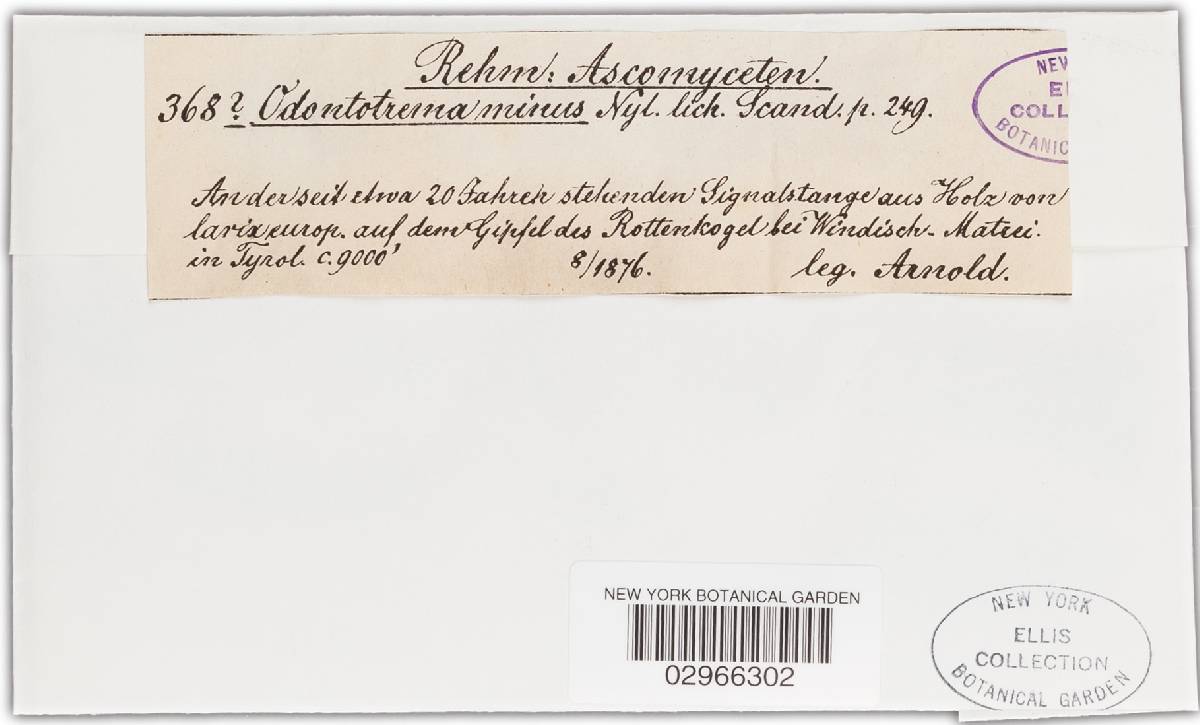 Rehm: Ascomyceten.
368? Odontotrema minus Nyl. lich. Scand. p. 249.
NEW
EL
COLL
BOTANIC
An der seit etwa 20 Jahren stehenden Signalstange aus Holz von
larix europ. auf dem Gipfel des Rottenkogel bei Windisch-Matrei.
in Tyrol. c. 9000'
8/1876.
leg. Arnold.
NEW YORK BOTANICAL GARDEN
02966302
NEW YORK
ELLIS
COLLECTION
BOTANICAL GARDEN